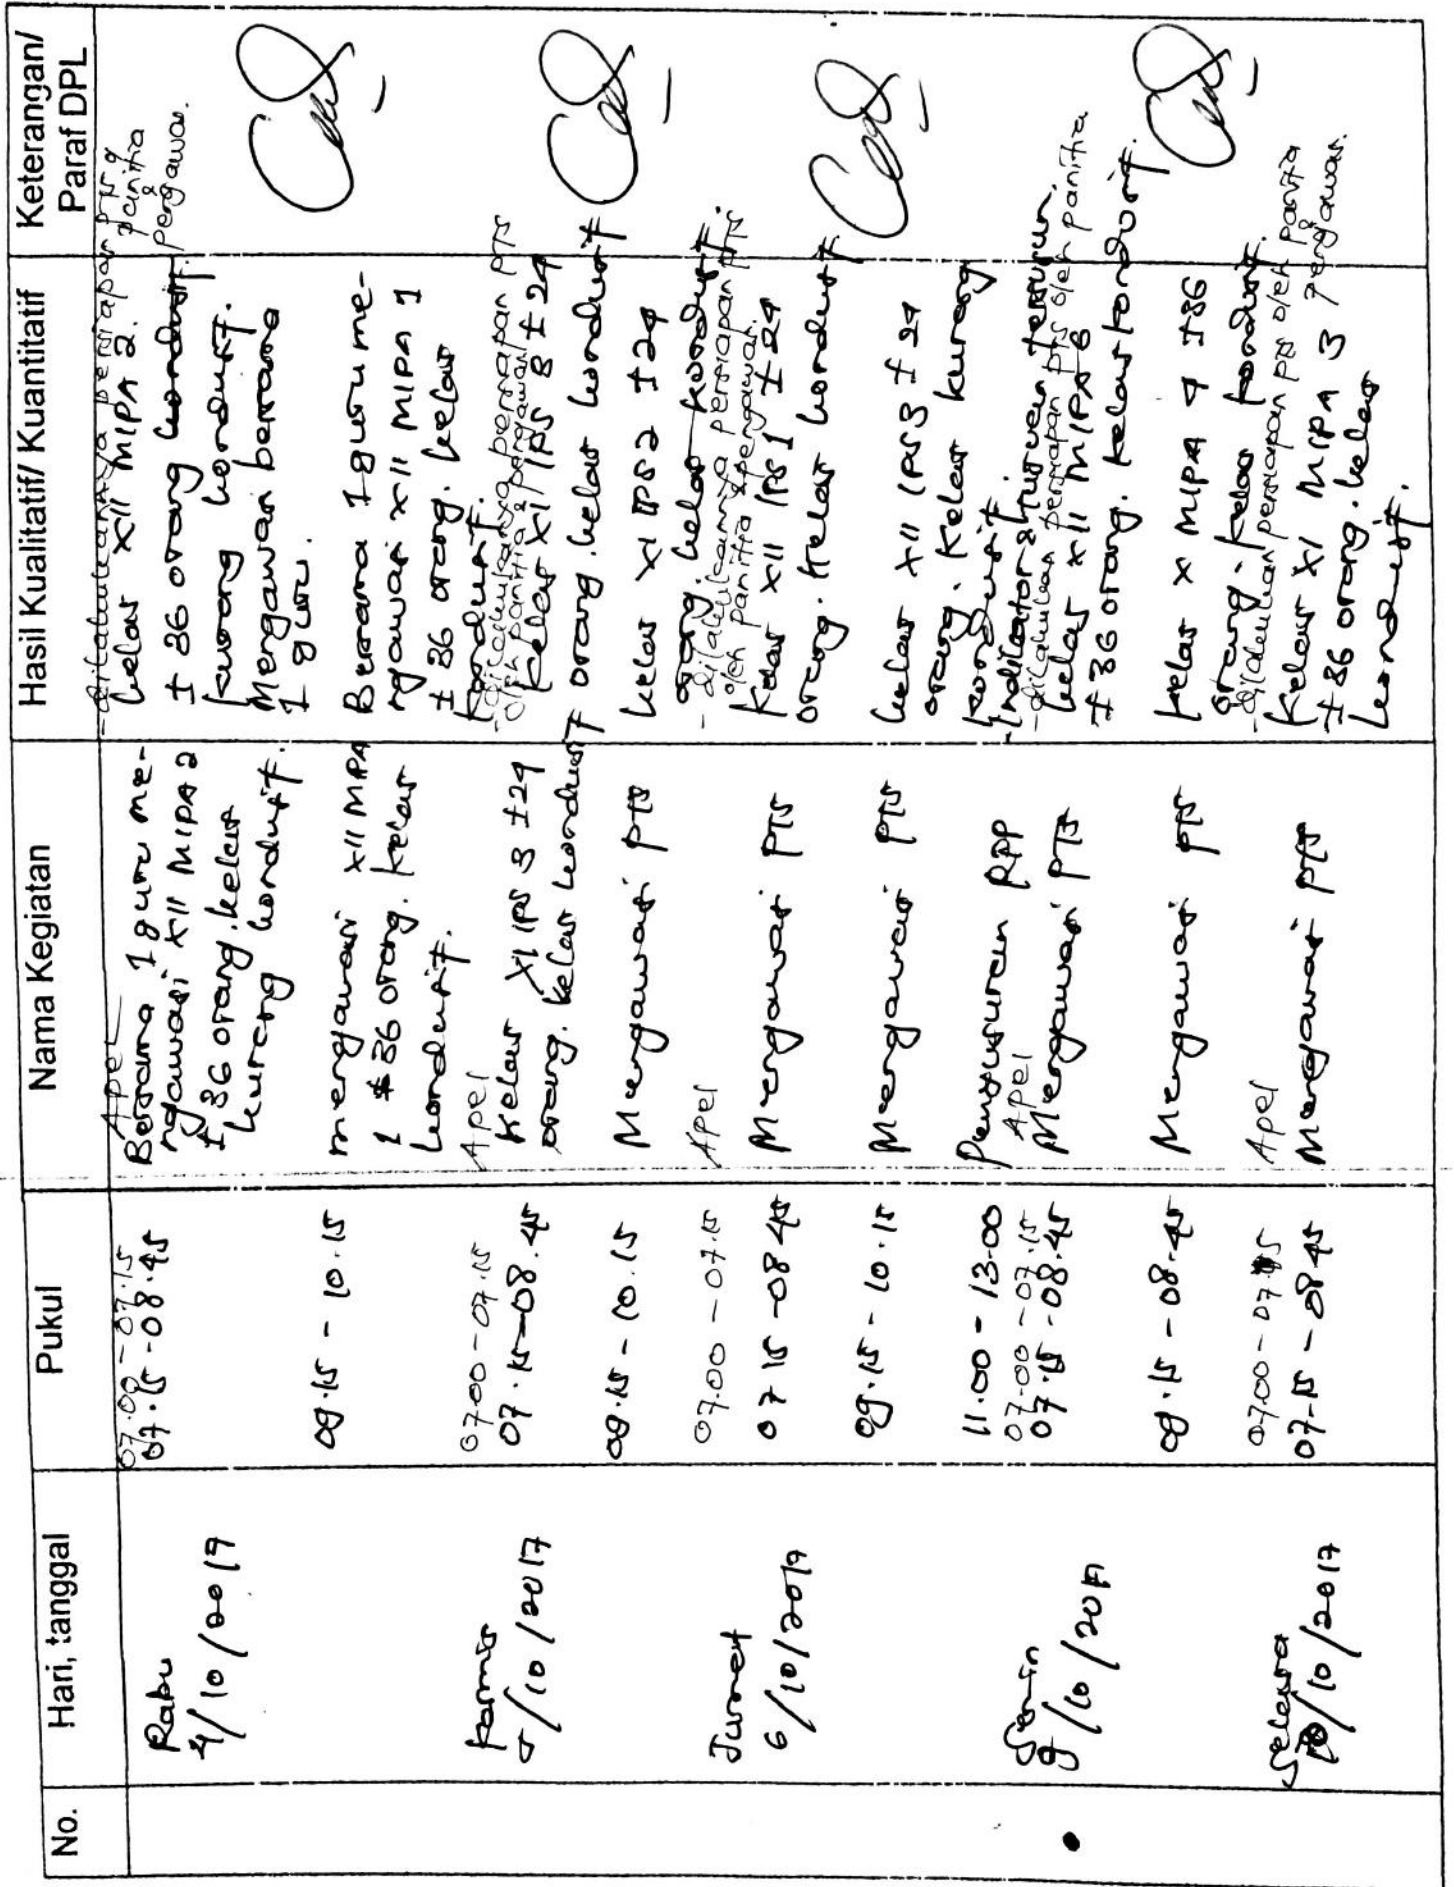 No.
Hari, tanggal
Pukul
Nama Kegiatan
Hasil Kualitatif/ Kuantitatif
Keterangan/
Paraf DPL
Rabu
4/10/2017
07.00 - 07.15
Apel
- dilaksanakannya persiapan PTS
panitia
&
pengawas.
07.15 - 08.45
Bersama 1 guru me-
ngawasi XII MIPA 2
± 36 orang. kelas
kurang kondusif.
kelas XII MIPA 2.
± 36 orang kondusif.
kurang kondusif.
Mengawasi bersama
1 guru.
09.15 - 10.15
mengawasi XII MIPA
1 ± 36 orang. kelas
kondusif.
Bersama 1 guru me-
ngawasi XII MIPA 1
± 36 orang. kelas
kondusif.
Kamis
5/10/2017
07.00 - 07.15
Apel
- dilakukannya persiapan PTS
oleh panitia & pengawas.
07.15 - 08.45
Kelas XI IPS 3 ± 29
orang. kelas kondusif
Kelas XI IPS 3 ± 29
orang. kelas kondusif
09.15 - 10.15
Mengawasi PTS
kelas XI IPS 2 ± 29
orang. kelas kondusif.
Jumat
6/10/2017
07.00 - 07.15
Apel
- dilakukannya persiapan PTS
oleh panitia & pengawas.
07 15 - 08 45
Mengawasi PTS
Kelas XII IPS 1 ± 29
orang. Kelas kondusif
09.15 - 10.15
Mengawasi PTS
kelas XII IPS 3 ± 29
orang. Kelas kurang
kondusif.
11.00 - 13.00
Penyusunan RPP
- Indikator & tujuan tersusun.
Senin
9/10/2017
07.00 - 07.15
Apel
- dilakukan persiapan PTS oleh panitia
07.15 - 08.45
Mengawasi PTS
kelas XII MIPA 6
± 36 orang. kelas kondusif.
09.15 - 08.45
Mengawasi PTS
kelas X MIPA 4 ± 36
orang. kelas kondusif.
Selasa
10/10/2017
07.00 - 07.15
Apel
- dilakukan persiapan PTS oleh panitia
& pengawas.
07-15 - 08 45
Mengawasi PTS
Kelas XI MIPA 3
± 36 orang. kelas
kondusif.